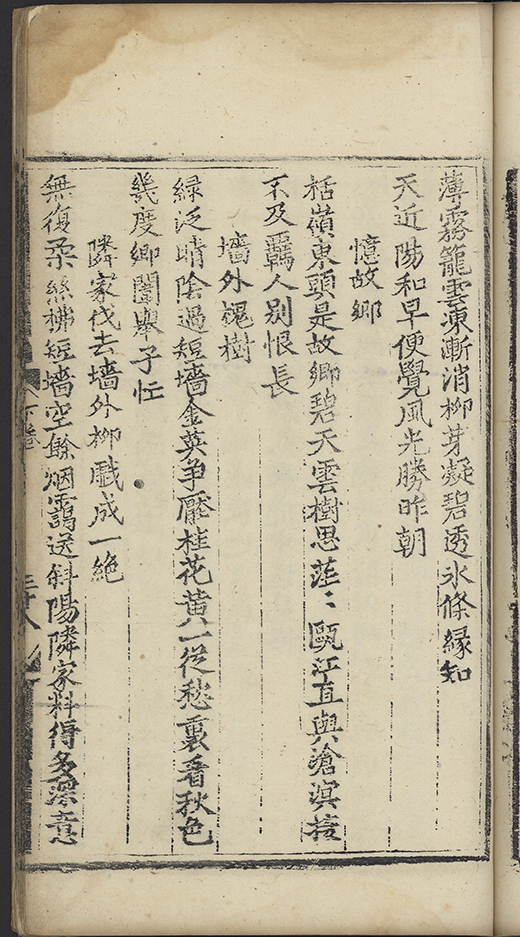 薄霧籠雲凍漸消柳芽凝碧透氷條縁知
天近陽和早便覺風光勝昨朝
憶故鄉
栝嶺東頭是故鄉碧天雲樹思茫〻甌江直與滄溟接
不及羈人别恨長
墻外槐樹
緑泛晴陰過短墻金英爭壓桂花黃一從愁裏看秋色
幾度鄉闈舉子忙
隣家伐去墻外柳戱成一絶
無復柔絲拂短墻空餘烟靄送斜陽隣家料得多深意
下卷